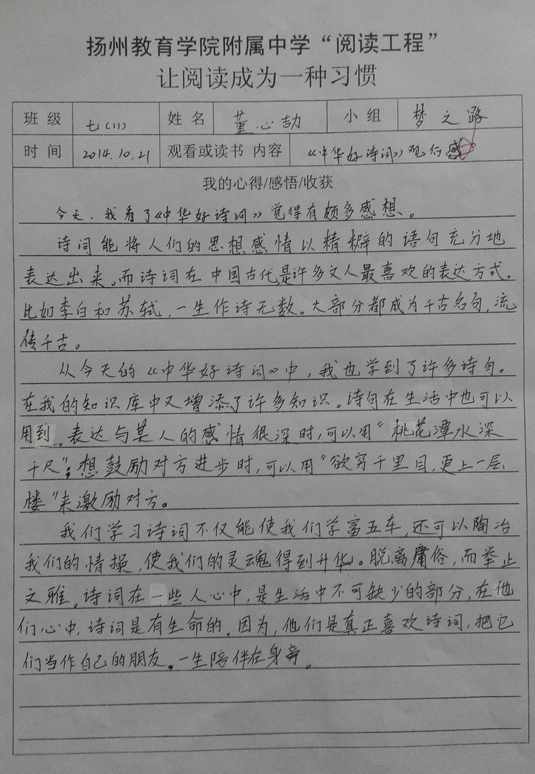 扬州教育学院附属中学“阅读工程”
让阅读成为一种习惯
班 级 七(1) 姓 名 董心劼 小 组 梦之路
时 间 2014.10.21 观看或读书 内容 《中华好诗词》观后感
我的心得/感悟/收获
今天,我看了《中华好诗词》觉得有颇多感想。
诗词能将人们的思想感情以精辟的语句充分地
表达出来。而诗词在中国古代是许多文人最喜欢的表达方式。
比如李白和苏轼,一生作诗无数。大部分都成为千古名句,流
传千古。
从今天的《中华好诗词》中,我也学到了许多诗句。
在我的知识库中又增添了许多知识。诗句在生活中也可以
用到。表达与某人的感情很深时,可以用“桃花潭水深
千尺”;想鼓励对方进步时,可以用“欲穷千里目,更上一层
楼”来激励对方。
我们学习诗词不仅能使我们学富五车,还可以陶冶
我们的情操,使我们的灵魂得到升华。脱离庸俗,而举止
文雅。诗词在一些人心中,是生活中不可缺少的部分,在他
们心中,诗词是有生命的。因为,他们是真正喜欢诗词,把它
们当作自己的朋友。一生陪伴在身旁。